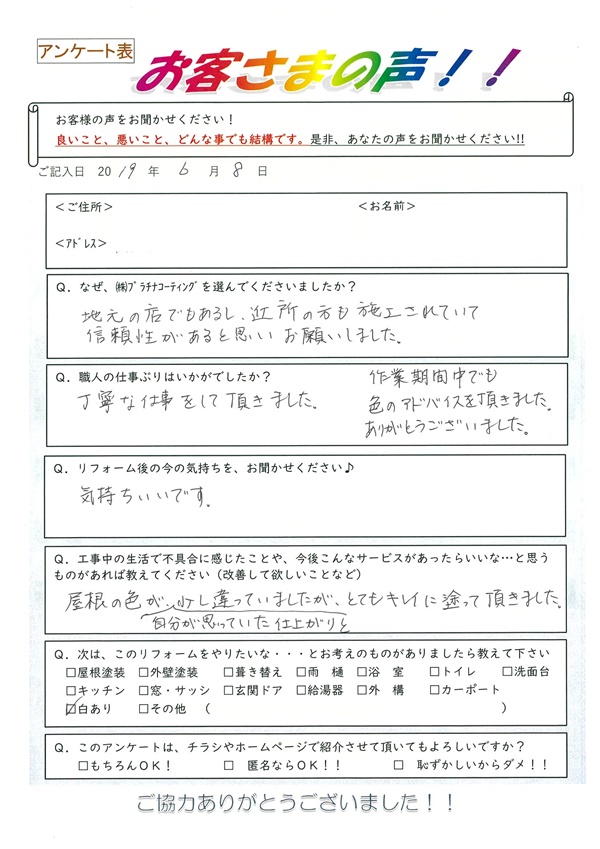 アンケート表
お客さまの声！！
お客様の声をお聞かせください！
良いこと、悪いこと、どんな事でも結構です。是非、あなたの声をお聞かせください!!
ご記入日 2019年 6月 8日
＜ご住所＞ ＜お名前＞
＜ｱﾄﾞﾚｽ＞
Q．なぜ、㈱ﾌﾟﾗﾁﾅｺｰﾃｨﾝｸﾞを選んでくださいましたか？
地元の店でもあるし、近所の方も施工されていて
信頼性があると思いお願いしました。
Q．職人の仕事ぶりはいかがでしたか？
丁寧な仕事をして頂きました。
作業期間中でも
色のアドバイスを頂きました。
ありがとうございました。
Q．リフォーム後の今の気持ちを、お聞かせください♪
気持ちいいです。
Q．工事中の生活で不具合に感じたことや、今後こんなサービスがあったらいいな…と思う
ものがあれば教えてください（改善して欲しいことなど）
屋根の色が、少し違っていましたが、とてもキレイに塗って頂きました。
自分が思っていた仕上がりと
Q．次は、このリフォームをやりたいな・・・とお考えのものがありましたら教えて下さい
□屋根塗装 □外壁塗装 □葺き替え □雨 樋 □浴 室 □トイレ □洗面台
□キッチン □窓・サッシ □玄関ドア □給湯器 □外 構 □カーポート
☑白あり □その他 （ ）
Q．このアンケートは、チラシやホームページで紹介させて頂いてもよろしいですか？
□もちろんＯＫ！ □ 匿名ならＯＫ！！ □ 恥ずかしいからダメ！！
ご協力ありがとうございました！！